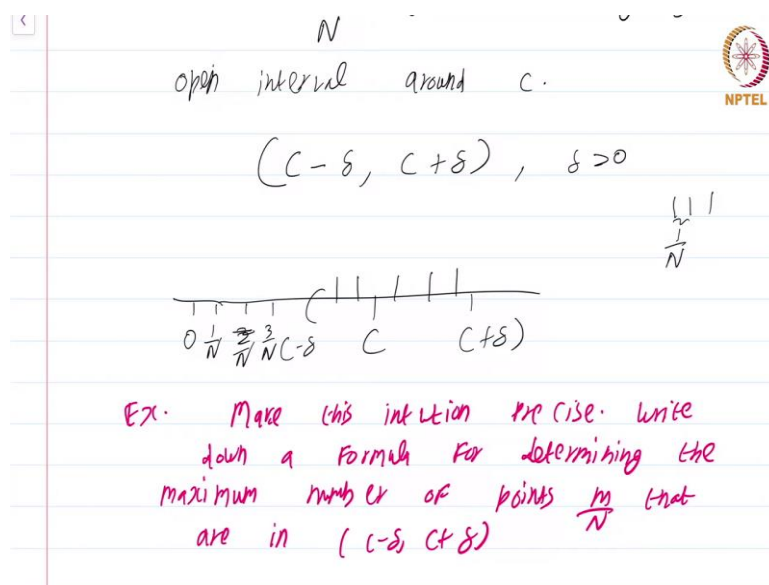 N
open interval around c.
NPTEL
(c-δ, c+δ), δ>0
1/N
0 1/N 2/N 3/N (-δ C C+δ)
Ex. Make this intution precise. Write
down a Formula For determining the
maximum number of points m/N that
are in (c-δ, c+δ)